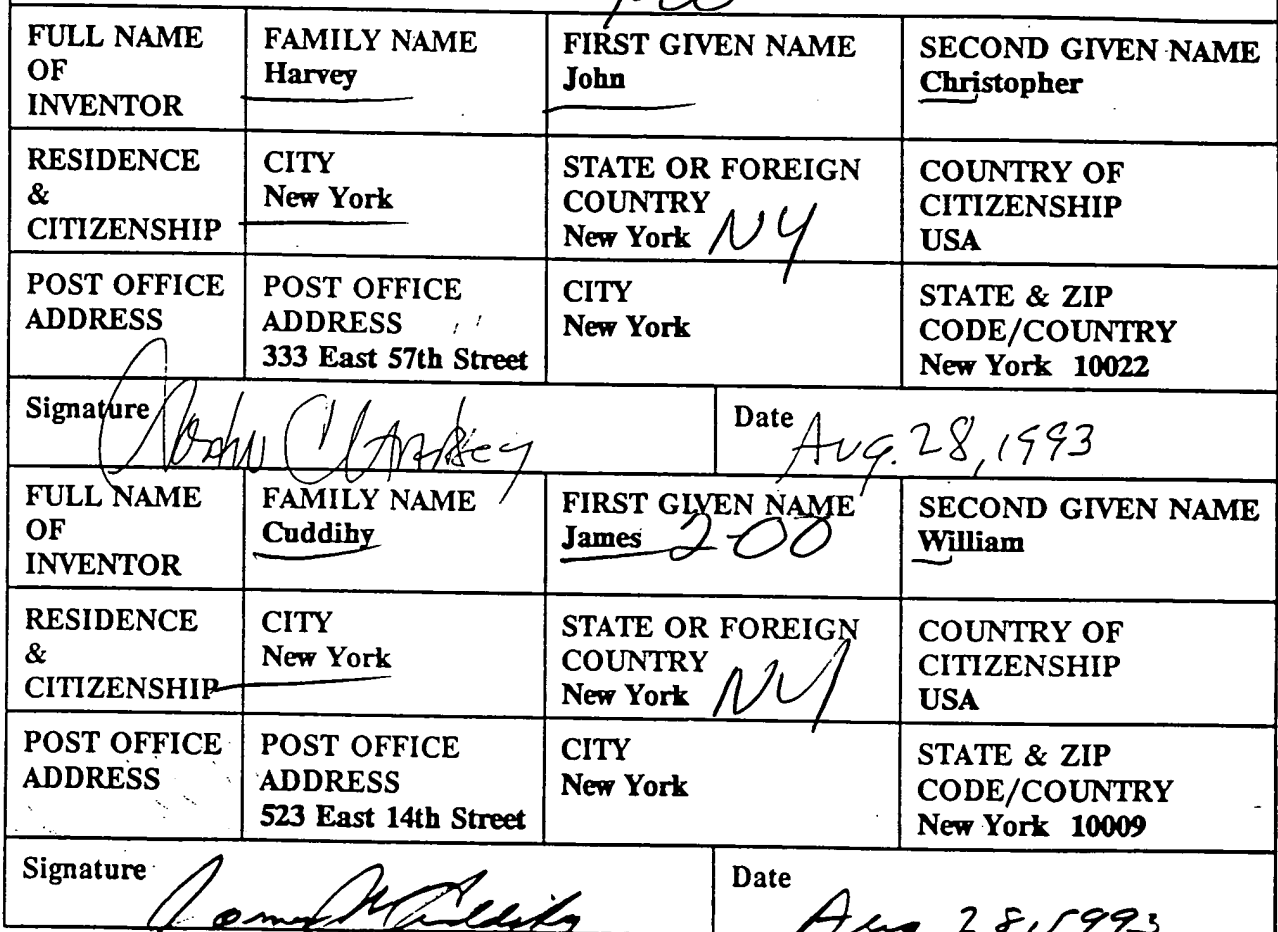 FULL NAME OF INVENTOR
FAMILY NAME
Harvey
FIRST GIVEN NAME
John
SECOND GIVEN NAME
Christopher
RESIDENCE & CITIZENSHIP
CITY
New York
STATE OR FOREIGN COUNTRY
New York NY
COUNTRY OF CITIZENSHIP
USA
POST OFFICE ADDRESS
POST OFFICE ADDRESS
333 East 57th Street
CITY
New York
STATE & ZIP CODE/COUNTRY
New York 10022
Signature John C Harvey
Date Aug. 28, 1993
FULL NAME OF INVENTOR
FAMILY NAME
Cuddihy
FIRST GIVEN NAME
James 2-00
SECOND GIVEN NAME
William
RESIDENCE & CITIZENSHIP
CITY
New York
STATE OR FOREIGN COUNTRY
New York NY
COUNTRY OF CITIZENSHIP
USA
POST OFFICE ADDRESS
POST OFFICE ADDRESS
523 East 14th Street
CITY
New York
STATE & ZIP CODE/COUNTRY
New York 10009
Signature James W Cuddihy
Date Aug 28, 1993